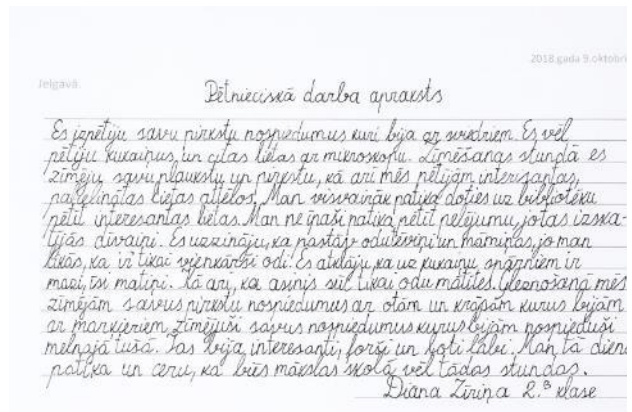 2018.gada 9.oktobri
Jelgavā
Pētnieciskā darba apraksts
Es izpētīju savu pirkstu nospiedumus kuri bija ar sviedriem. Es vēl
pētīju kukaiņus un citas lietas ar mikroskopu. Zīmēšanas stundā es
zīmēju savu plaukstu un pirkstu, kā arī mēs pētījām interesantas,
palielinātas lietas attēlos. Man visvairāk patika doties uz bibliotēku
pētīt interesantas lietas. Man ne īpaši patika pētīt pelējumu, jo tas izska-
tījās dīvaini. Es uzzināju, ka pastāv odutēviņi un māmiņas, jo man
likās, ka ir tikai vienkārši odi. Es atklāju, ka uz kukaiņu spārniem ir
mazi, īsi matiņi. Kā ary, ka asinis sūc tikai odu mātītes. Gleznošanā mēs
zīmējām savus pirkstu nospiedumus ar otām un krāsām kurus bijām
ar markieriem zīmējuši savus nospiedumus kurus bijām nospieduši
melnajā tušā. Tas bija interesanti, forši un ļoti labi. Man tā diena
patika un ceru, ka būs mākslas skolā vēl tādas stundas.
Diāna Zīriņa 2.ᵃ klase